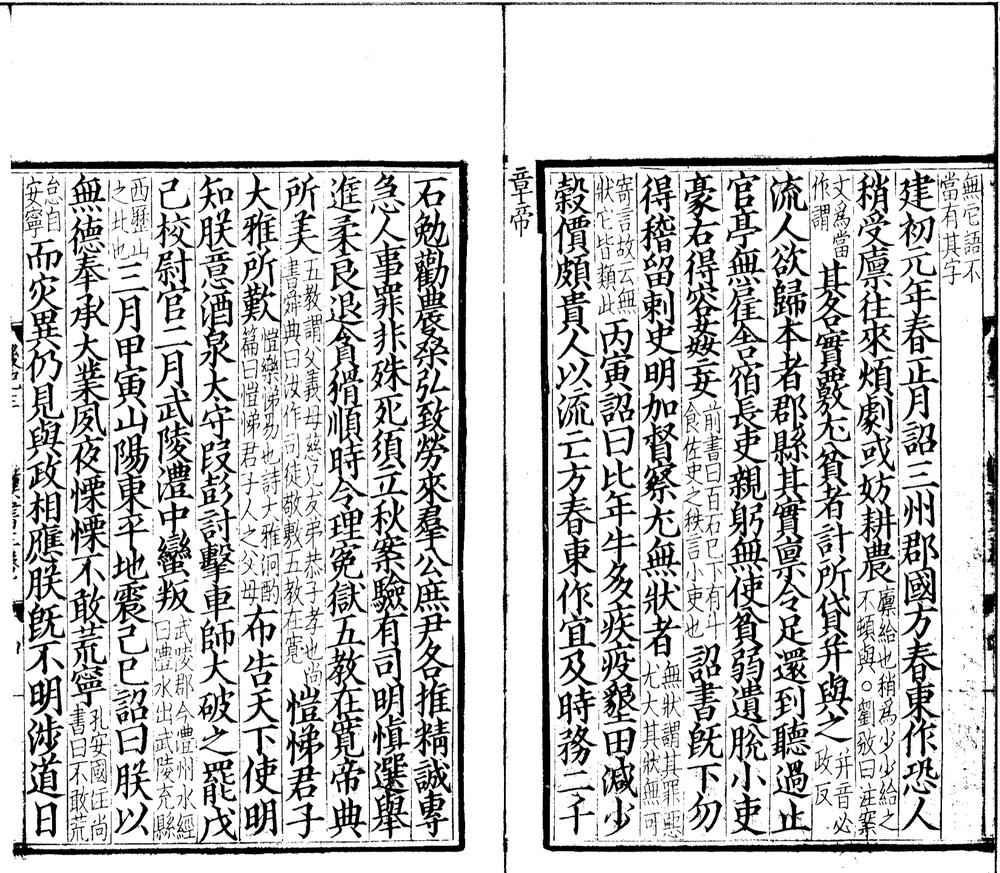 無它語不
當有其字
建初元年春正月詔三州郡國方春東作恐人
稍受廪往來煩劇或妨耕農廪給也稍為少少給之不頓與○劉攽曰注案
文為當作謂其各實覈尤貧者計所貸并與之并音必政反
流人欲歸本者郡縣其實禀令足還到聽過止
官亭無雇舍宿長吏親躬無使貧弱遺脫小吏
豪右得容姦妄前書曰百石已下有斗食佐史之秩言小吏也詔書旣下勿
得稽留刺史明加督察尤無狀者無狀謂其罪惡尤大其狀無可
寄言故云無狀它皆類此丙寅詔曰比年牛多疾疫墾田減少
穀價頗貴人以流亡方春東作宜及時務二千
章帝
石勉勸農桑弘致勞來羣公庶尹各推精誠專
急人事罪非殊死須立秋案驗有司明慎選舉
進柔良退貪猾順時令理冤獄五教在寬帝典
所美五教謂父義母慈兄友弟恭子孝也尚書舜典曰汝作司徒敬敷五教在寬愷悌君子
大雅所歎愷樂悌易也詩大雅泂酌篇曰愷悌君子人之父母布告天下使明
知朕意酒泉太守段彭討擊車師大破之罷戊
己校尉官二月武陵澧中蠻叛武陵郡今澧州水經曰澧水出武陵充縣
西歷山之北也三月甲寅山陽東平地震己巳詔曰朕以
無德奉承大業夙夜慄慄不敢荒寧孔安國注尚書曰不敢荒
怠自安寧而灾異仍見與政相應朕旣不明涉道日